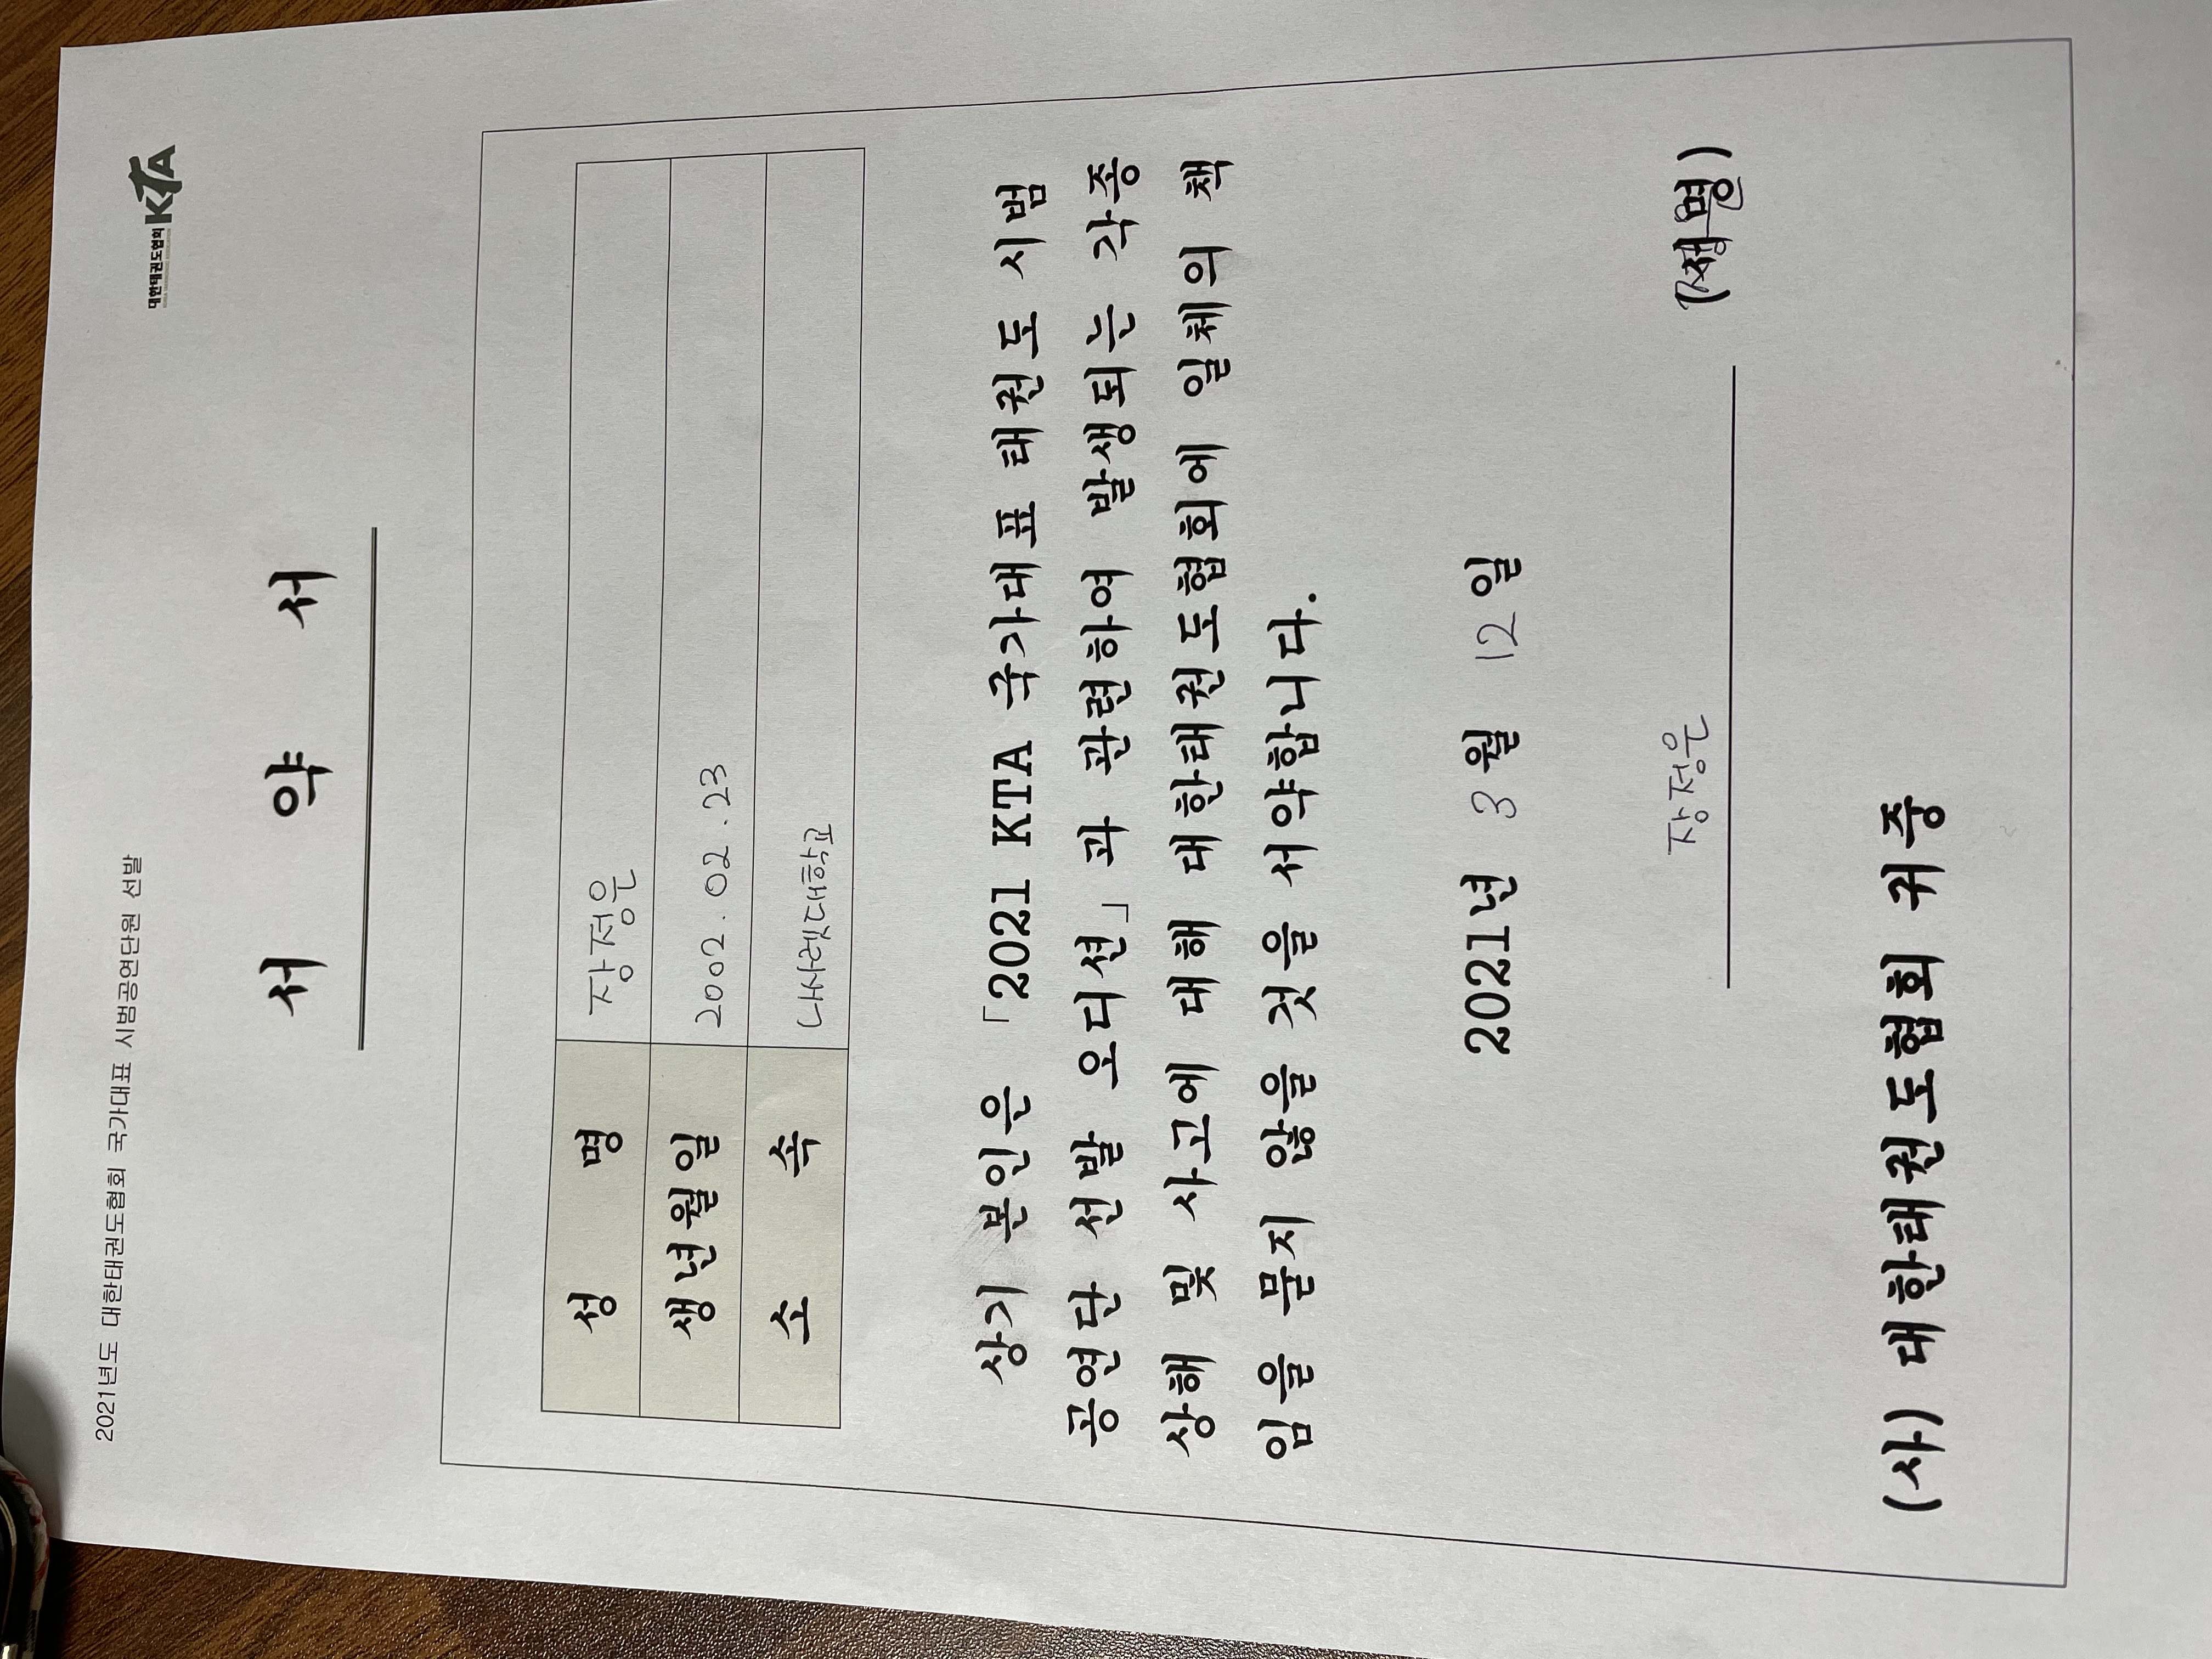 2021년도 대한태권도협회 국가대표 시범공연단원 선발
대한태권도협회 KTA
서 약 서
성 명 장정은
생년월일 2002.02.23
소 속 나사렛대학교
상기 본인은 「2021 KTA 국가대표 태권도 시범
공연단 선발 오디션」과 관련하여 발생되는 각종
상해 및 사고에 대해 대한태권도협회에 일체의 책
임을 물지 않을 것을 서약합니다.
2021년 3월 12일
장정은 (서명)
(사) 대한태권도협회 귀중